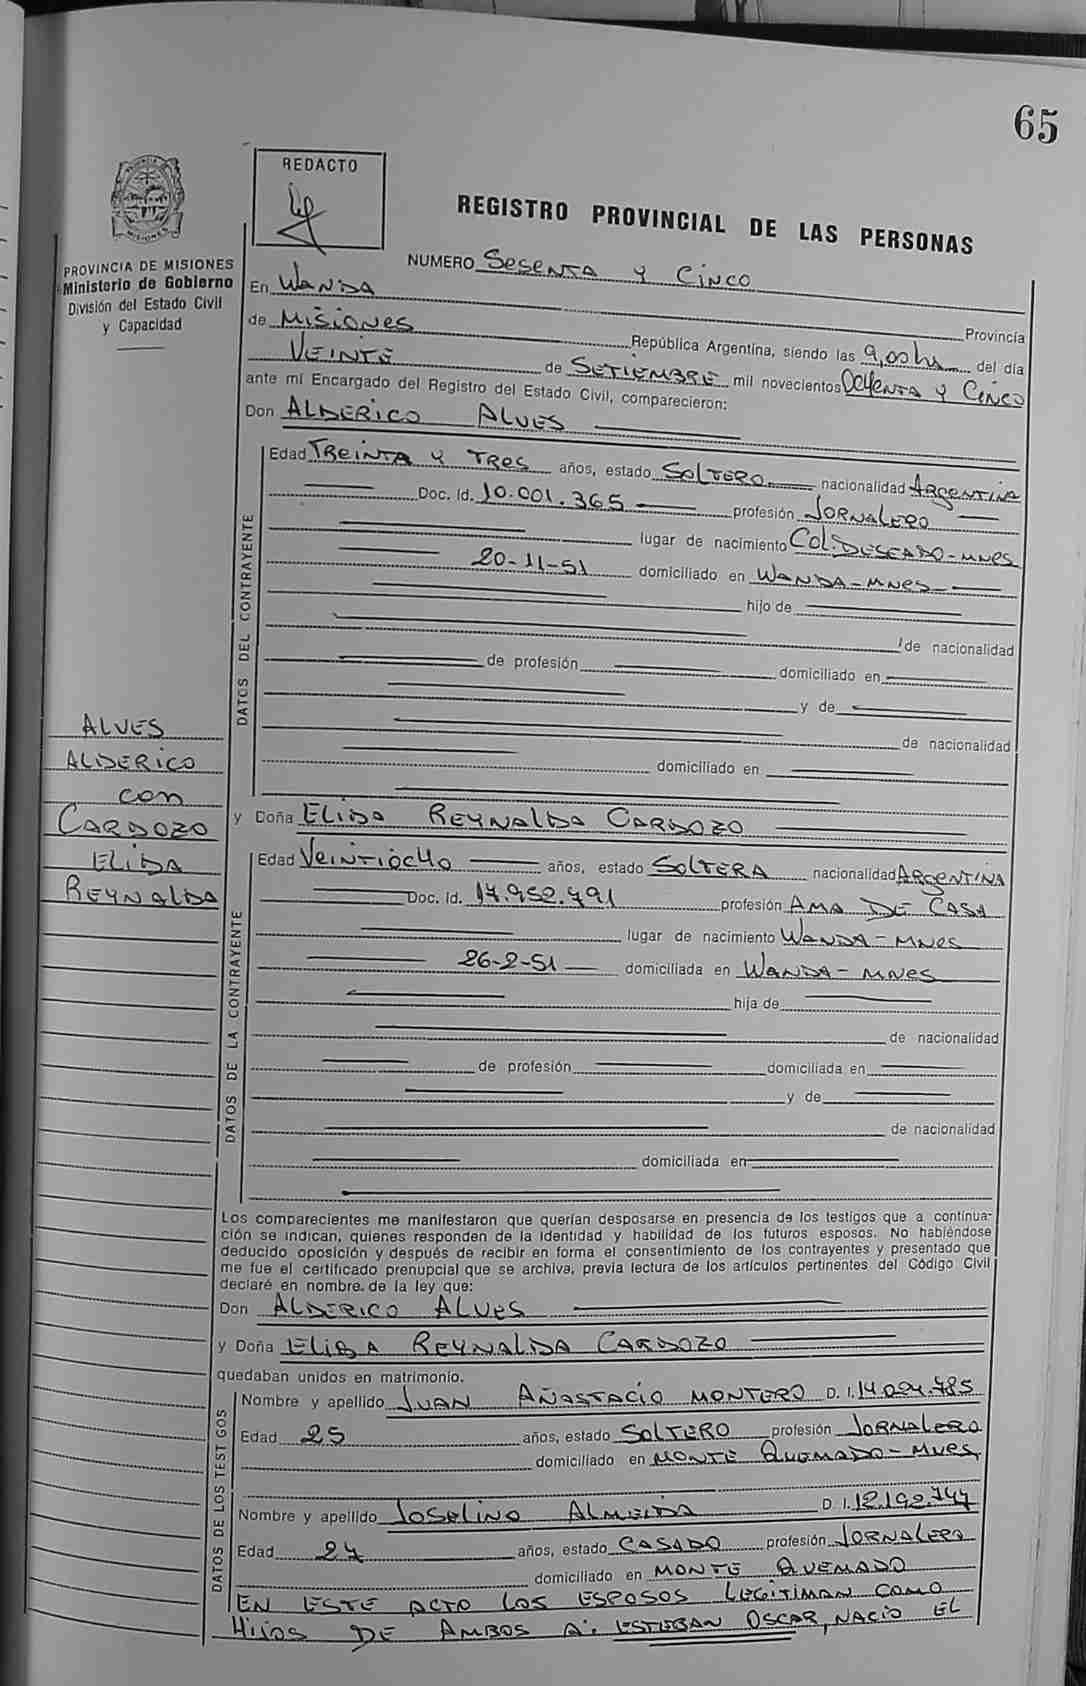 65
REDACTO
REGISTRO PROVINCIAL DE LAS PERSONAS
PROVINCIA DE MISIONES
Ministerio de Gobierno
División del Estado Civil
y Capacidad
NUMERO Sesenta y Cinco
En Wanda Provincia
de Misiones República Argentina, siendo las 9,00 hs del día
Veinte de Setiembre mil novecientos Ochenta y Cinco
ante mí Encargado del Registro del Estado Civil, comparecieron:
Don Alderico Alves
DATOS DEL CONTRAYENTE
Edad Treinta y Tres años, estado Soltero nacionalidad Argentina
Doc. Id. 10.001.365 profesión Jornalero
lugar de nacimiento Col. Deseado-Mnes
20-11-51 domiciliado en Wanda-Mnes-
hijo de
de nacionalidad
de profesión domiciliado en
y de
de nacionalidad
domiciliado en
ALVES
ALDERICO
con
CARDOZO
ELIDA
REYNALDA
y Doña Elida Reynalda Cardozo
DATOS DE LA CONTRAYENTE
Edad Veintiocho años, estado Soltera nacionalidad Argentina
Doc. Id. profesión Ama de Casa
lugar de nacimiento Wanda-Mnes
26-2-51 domiciliada en Wanda-Mnes
hija de
de nacionalidad
de profesión domiciliada en
y de
de nacionalidad
domiciliada en
Los comparecientes me manifestaron que querían desposarse en presencia de los testigos que a continua-
ción se indican, quienes responden de la identidad y habilidad de los futuros esposos. No habiéndose
deducido oposición y después de recibir en forma el consentimiento de los contrayentes y presentado que
me fue el certificado prenupcial que se archiva, previa lectura de los artículos pertinentes del Código Civil
declaré en nombre de la ley que:
Don Alderico Alves
y Doña Elida Reynalda Cardozo
quedaban unidos en matrimonio.
DATOS DE LOS TESTIGOS
Nombre y apellido Juan Añastacio Montero D. I.
Edad 25 años, estado Soltero profesión Jornalero
domiciliado en Monte Quemado-Mnes,
Nombre y apellido Joselino Almeida D. I. 12.192.747
Edad 27 años, estado Casado profesión Jornalero
domiciliado en Monte Quemado
En este acto los esposos legitiman como
Hijos de ambos a: Esteban Oscar, nacio el